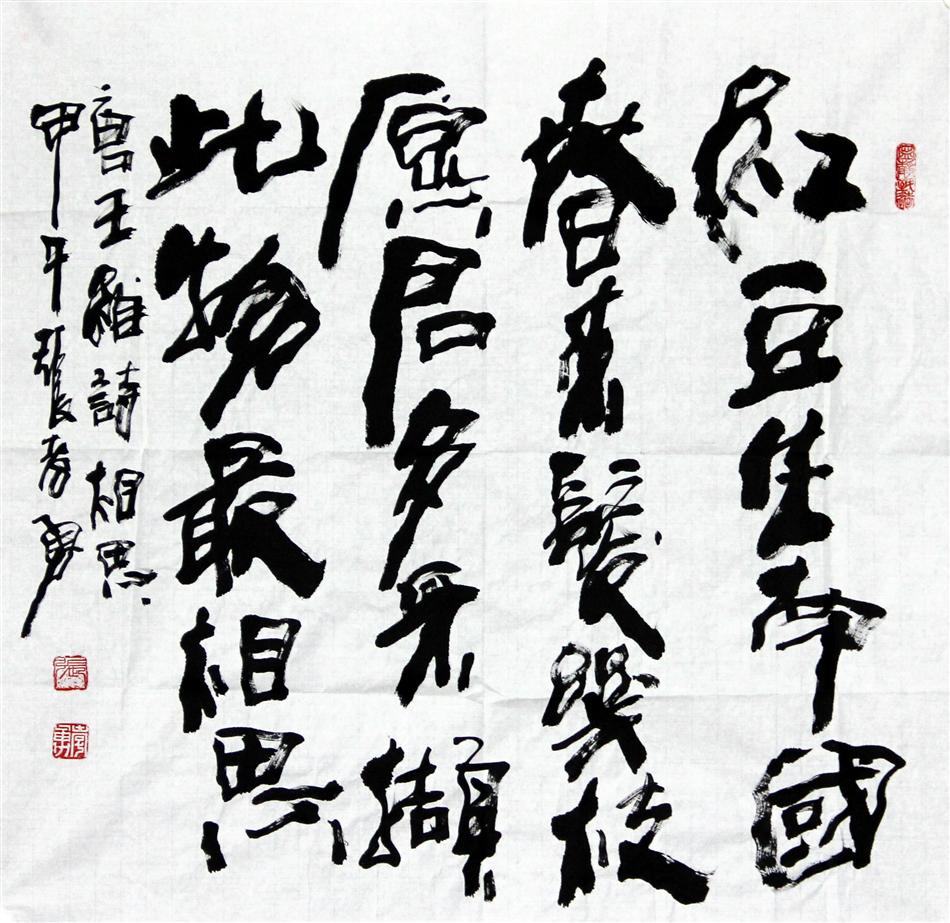 红豆生南國
春来髮幾枝
愿君多采擷
此物最相思
唐王維詩相思
甲午張孝勇